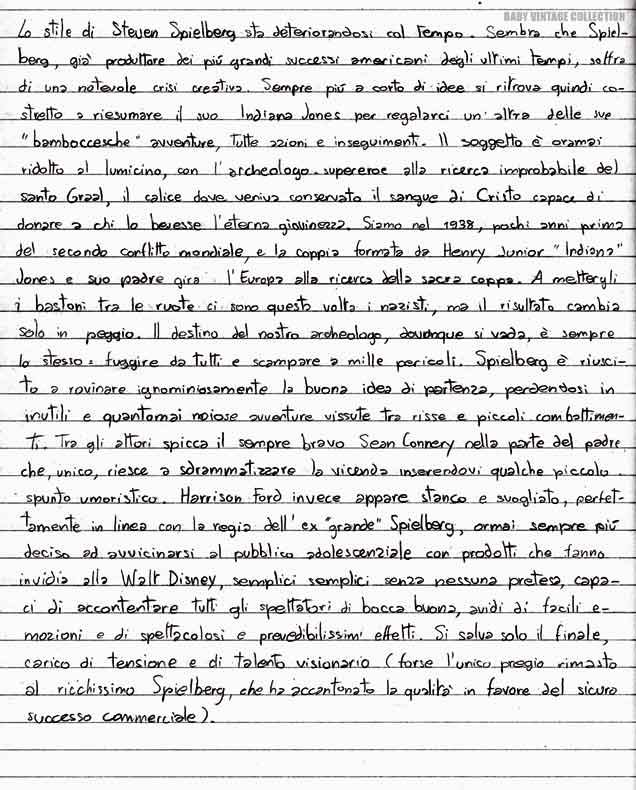 BABY VINTAGE COLLECTION
Lo stile di Steven Spielberg sta deteriorandosi col tempo. Sembra che Spiel-
berg, già produttore dei più grandi successi americani degli ultimi tempi, soffra
di una notevole crisi creativa. Sempre più a corto di idee si ritrova quindi co-
stretto a riesumare il suo Indiana Jones per regalarci un'altra delle sue
"bamboccesche" avventure, tutte azioni e inseguimenti. Il soggetto è oramai
ridotto al lumicino, con l'archeologo-supereroe alla ricerca improbabile del
santo Graal, il calice dove veniva conservato il sangue di Cristo capace di
donare a chi lo bevesse l'eterna giovinezza. Siamo nel 1938, pochi anni prima
del secondo conflitto mondiale, e la coppia formata da Henry Junior "Indiana"
Jones e suo padre gira l'Europa alla ricerca della sacra coppa. A mettergli
i bastoni tra le ruote ci sono questa volta i nazisti, ma il risultato cambia
solo in peggio. Il destino del nostro archeologo, dovunque si vada, è sempre
lo stesso: fuggire da tutti e scampare a mille pericoli. Spielberg è riusci-
to a rovinare ignominiosamente la buona idea di partenza, perdendosi in
inutili e quantomai noiose avventure vissute tra risse e piccoli combattimen-
ti. Tra gli attori spicca il sempre bravo Sean Connery nella parte del padre
che, unico, riesce a sdrammatizzare la vicenda inserendovi qualche piccolo
spunto umoristico. Harrison Ford invece appare stanco e svogliato, perfet-
tamente in linea con la regia dell'ex "grande" Spielberg, ormai sempre più
deciso ad avvicinarsi al pubblico adolescenziale con prodotti che fanno
invidia alla Walt Disney, semplici semplici senza nessuna pretesa, capa-
ci di accontentare tutti gli spettatori di bocca buona, avidi di facili e-
mozioni e di spettacolosi e prevedibilissimi effetti. Si salva solo il finale,
carico di tensione e di talento visionario (forse l'unico pregio rimasto
al ricchissimo Spielberg, che ha accantonato la qualità in favore del sicuro
successo commerciale).